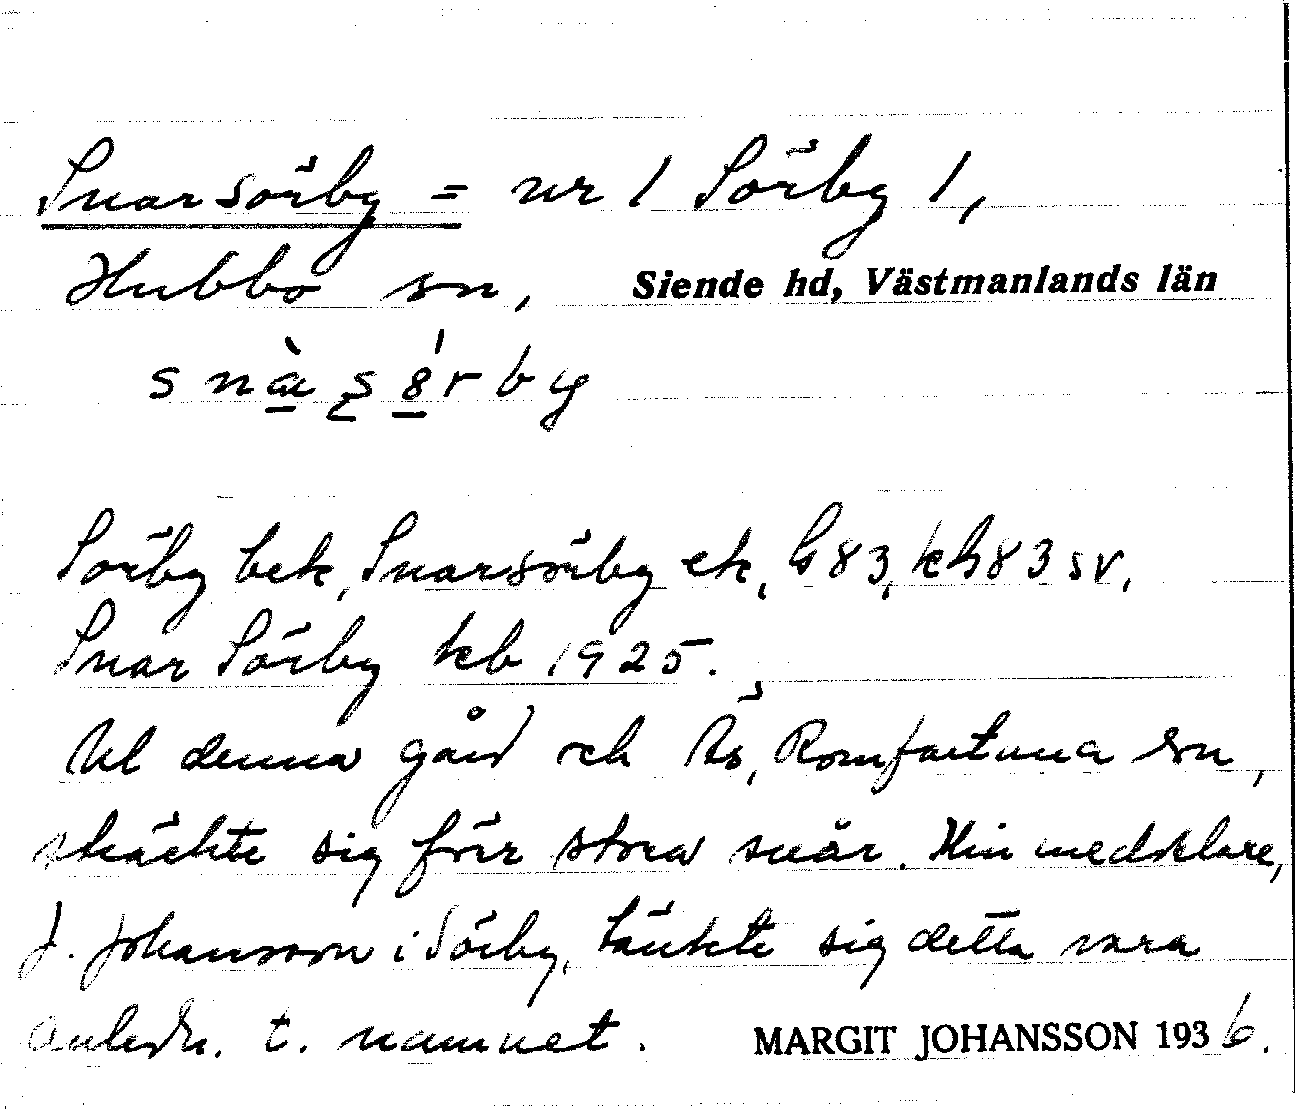 Snarsörby = nr 1 Sörby 1,
Hubbo sn, Siende hd, Västmanlands län
Sörby bek, Snarsörby ek, G83, kG83 sv,
Snar Sörby kb 1925.
Ml denna gård och Ås, Romfartuna sn,
sträckte sig förr stora snår. Min meddelare,
J. Johansson i Sörby, tänkte sig detta vara
anledn. t. namnet. MARGIT JOHANSSON 1936.